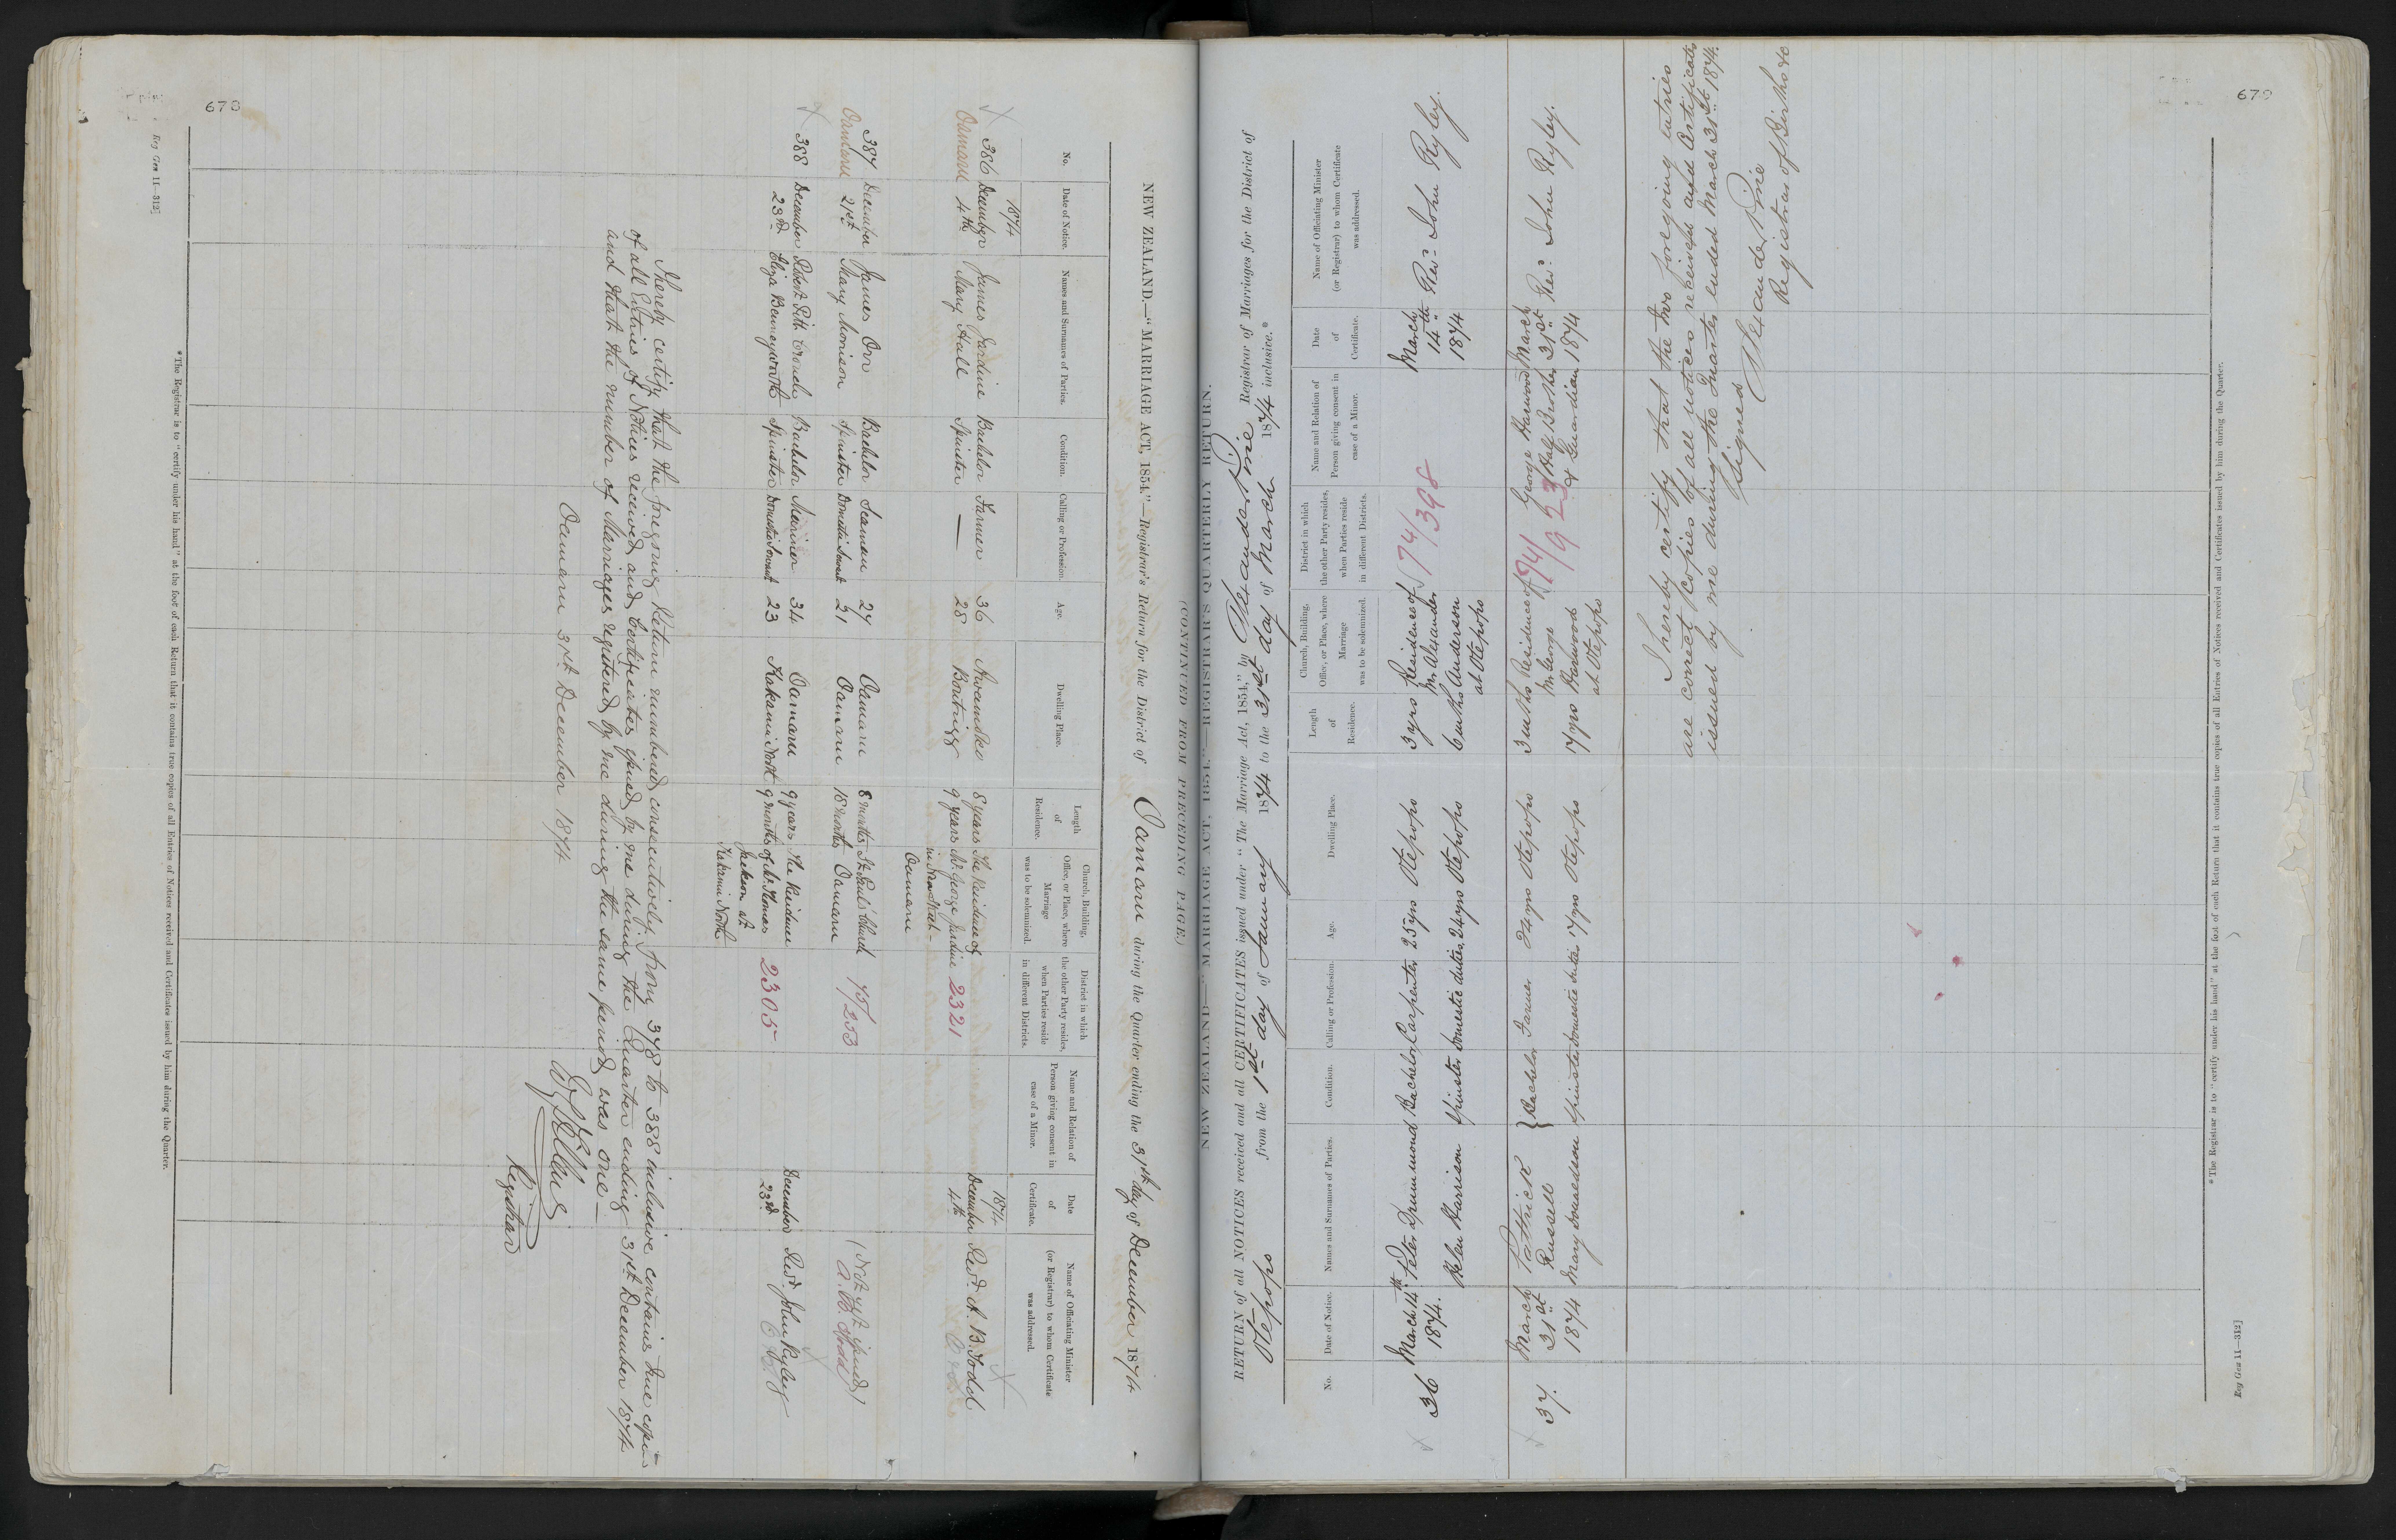 678
Reg Gen 11—312]
NEW ZEALAND.—"MARRIAGE ACT, 1854."—Registrar's Return for the District of Oamaru during the Quarter ending the 31st day of December 1874
No. Date of Notice. Names and Surnames of Parties. Condition. Calling or Profession. Age. Dwelling Place. Length of Residence. Church, Building, Office, or Place, where Marriage was to be solemnized. District in which the other Party resides, when Parties reside in different Districts. Name and Relation of Person giving consent in case of a Minor. Date of Certificate. Name of Officiating Minister (or Registrar) to whom Certificate was addressed.
1874 1874
386 December James Jardine Bachelor Farmer 36 Awamoko 8 years The Residence of December Revd. A. B. Todd
Oamaru 4th Mary Hall Spinster — 28 9 years Mr. George Jardine 2321 4th
Oamaru
387 December James Orr Bachelor Seaman 27 Oamaru 8 months St. Paul's Church 75/253 (Not yet issued)
Oamaru 21st Mary Morison Spinster Domestic Servant 21 Oamaru 18 months Oamaru A. B. Todd
388 December Robert Pitt Bachelor Mariner 34 Oamaru 9 years The Residence 2305 December Revd John Ryley
23rd Eliza Spinster Domestic Servant 23 Kakanui North 9 months of Mr. Thomas 23rd
Jackson at
Kakanui North
I hereby certify that the foregoing Return numbered consecutively from 378 to 388 inclusive contains true copies
of all Entries of Notices received and Certificates issued by me during the Quarter ending 31st December 1874
and that the number of Marriages registered by me during the same period was one—
Oamaru 31st December 1874
Registrar
*The Registrar is to "certify under his hand" at the foot of each Return that it contains true copies of all Entries of Notices received and Certificates issued by him during the Quarter.
679
NEW ZEALAND—"MARRIAGE ACT, 1854."—REGISTRAR'S QUARTERLY RETURN.
(CONTINUED FROM PRECEDING PAGE.)
RETURN of all NOTICES received and all CERTIFICATES issued under "The Marriage Act, 1854," by Alexander Pirie Registrar of Marriages for the District of
Otepopo from the 1st day of January 1874 to the 31st day of March 1874 inclusive.*
No. Date of Notice. Names and Surnames of Parties. Condition. Calling or Profession. Age. Dwelling Place. Length of Residence. Church, Building, Office, or Place, where Marriage was to be solemnized. District in which the other Party resides, when Parties reside in different Districts. Name and Relation of Person giving consent in case of a Minor. Date of Certificate. Name of Officiating Minister (or Registrar) to whom Certificate was addressed.
36 March 14th Peter Drummond Bachelor Carpenter 25 yrs Otepopo 3 yrs Residence of 74/398 March Revd. John Ryley.
1874. Mr Alexander 14th
Helen Harrison Spinster domestic duties 24 yrs Otepopo 6 mths Anderson 1874
at Otepopo
37. March Patrick Bachelor Farmer 24 yrs Otepopo 3 mths Residence of 74/923 George Harwood March Revd. John Ryley.
31st Russell Mr George Half Brother 31st
1874 Mary Donaldson Spinster domestic duties 17 yrs Otepopo 17 yrs Harwood & Guardian 1874
at Otepopo
I hereby certify that the two foregoing entries
are correct copies of all notices received and Certificates
issued by me during the Quarter ended March 31st 1874.
Signed Alexander Pirie
Registrar of Births &c
*The Registrar is to "certify under his hand" at the foot of each Return that it contains true copies of all Entries of Notices received and Certificates issued by him during the Quarter.
Reg Gen 11—312]